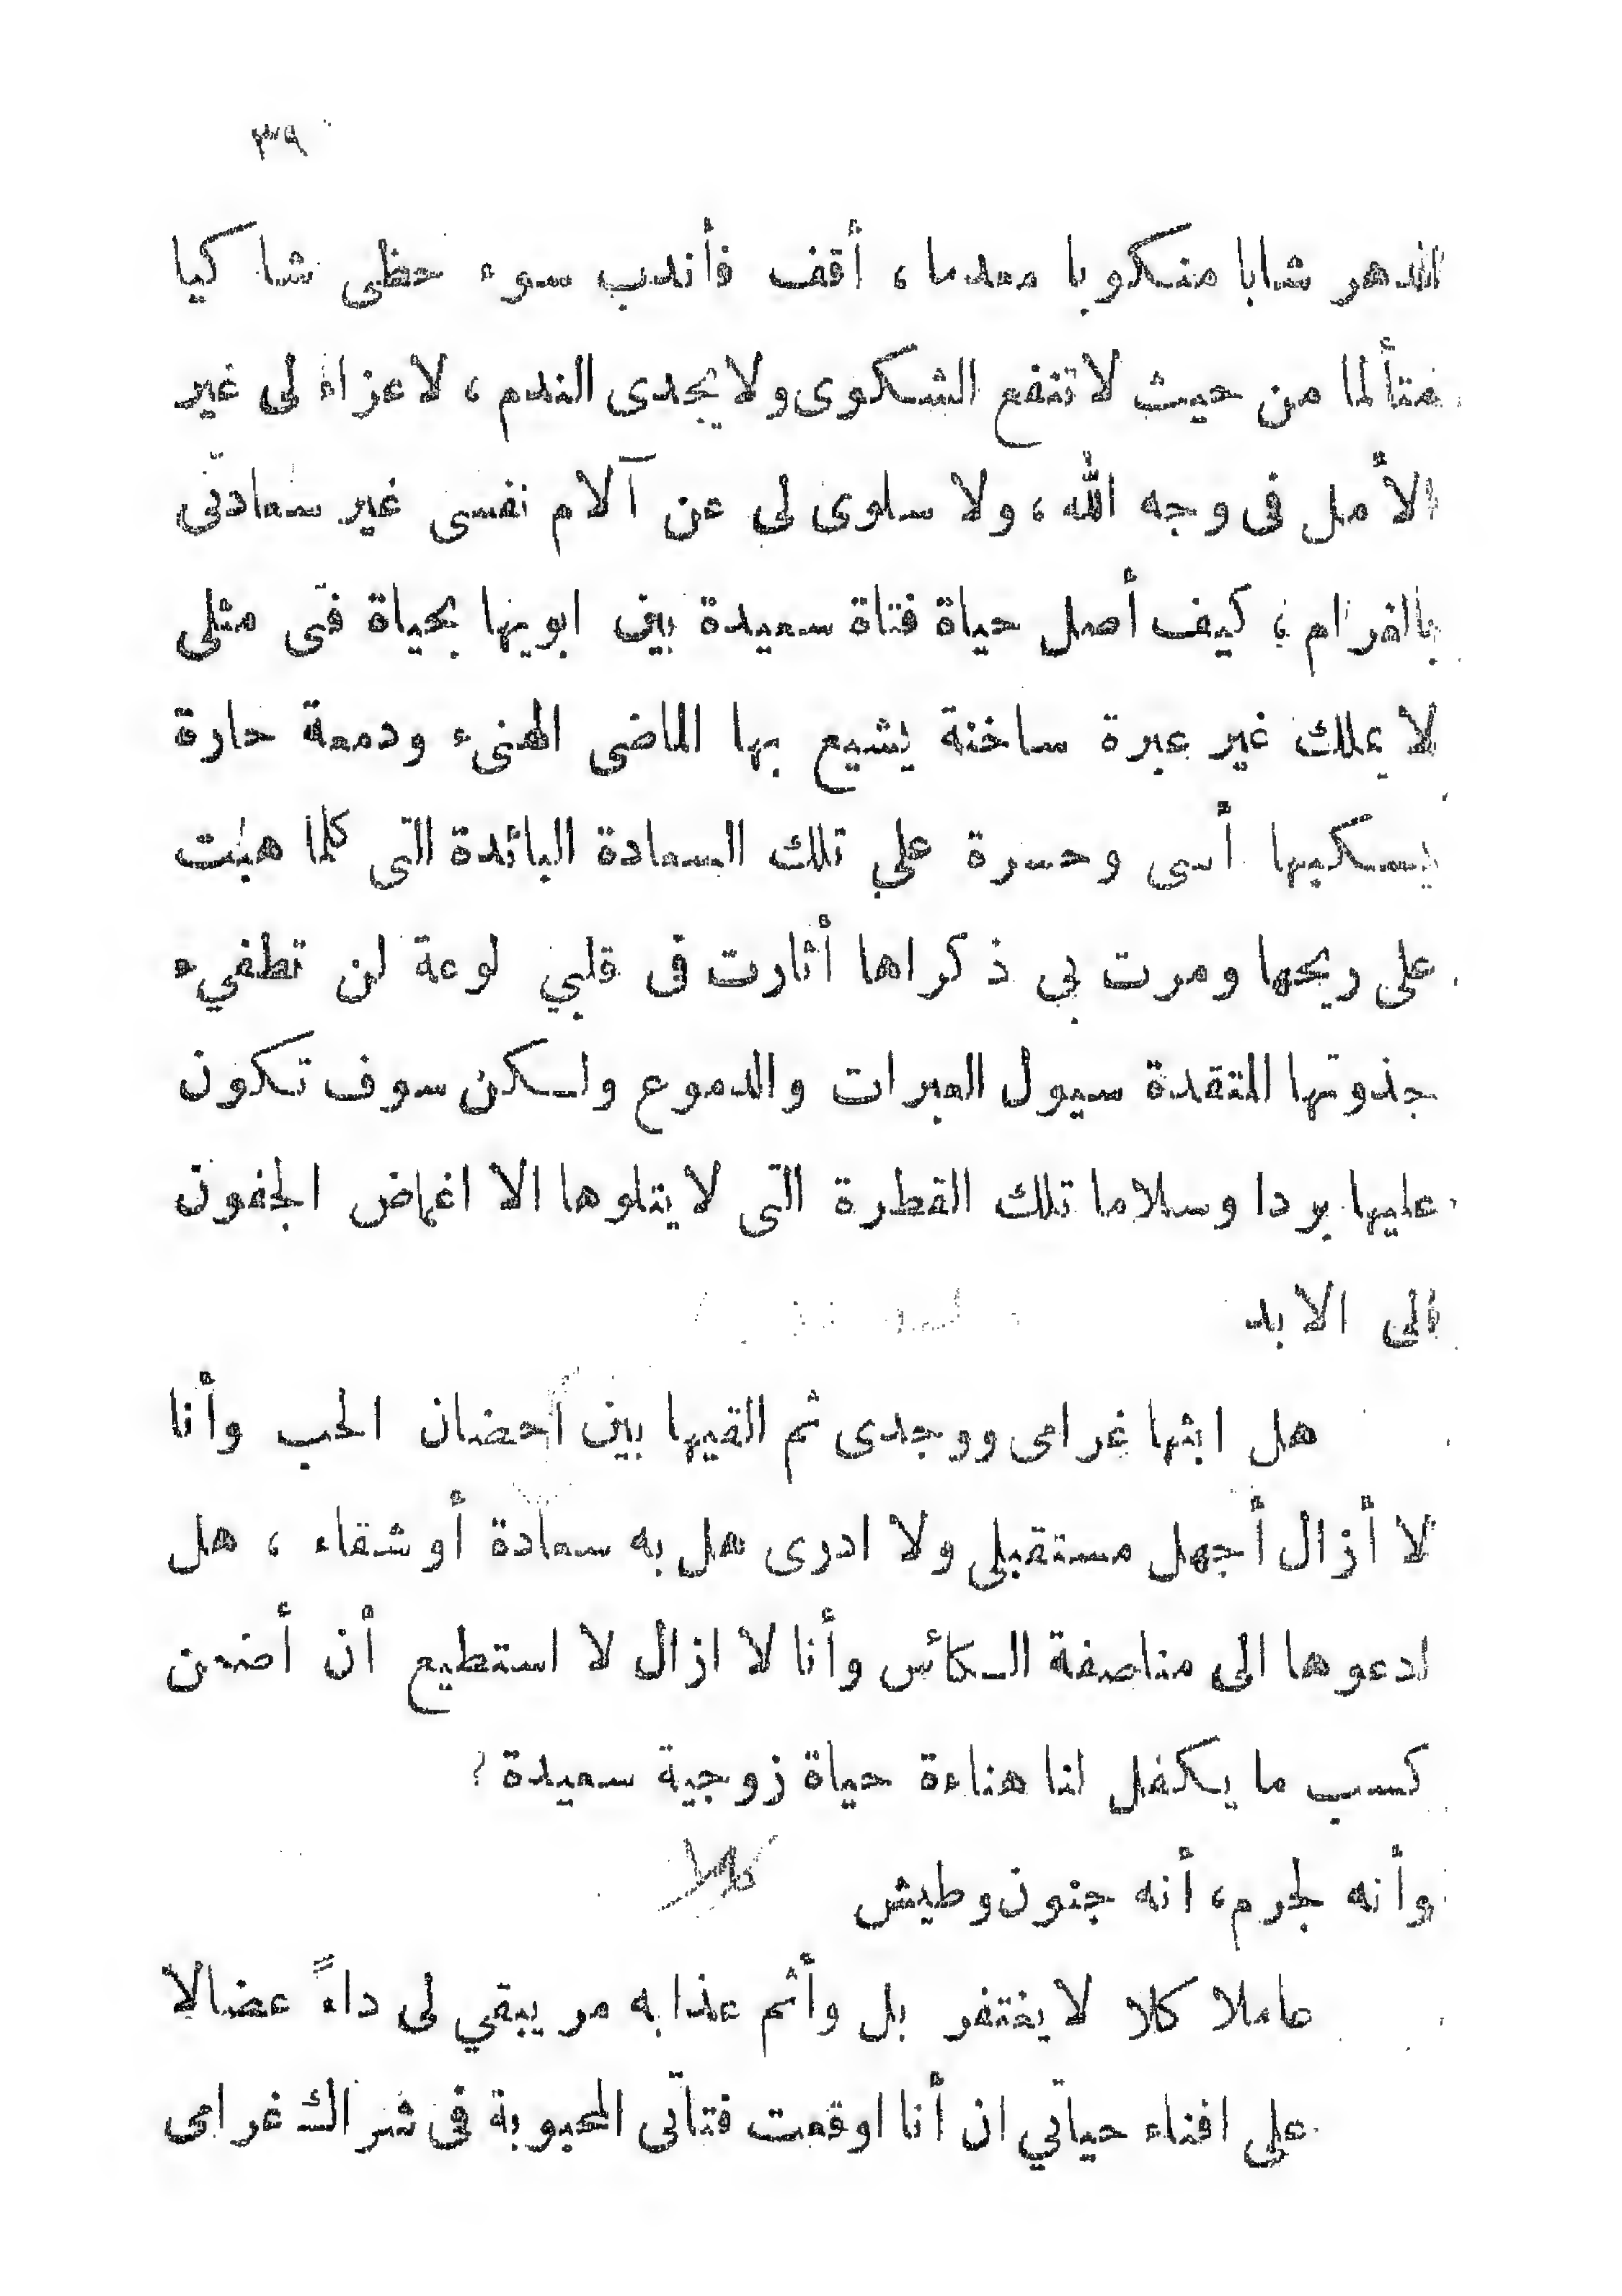 ٣٩
الدهر شابا منكوبا معدما، أقف فأندب سوء حظى شاكيا
متألما من حيث لا تنفع الشكوى ولا يجدى الندم، لا عزاء لى غير
الأمل فى وجه الله، ولا سلوى لى عن آلام نفسى غير سعادتى
بالغرام، كيف أصل حياة فتاة سعيدة بين ابويها بحياة فتى مثلى
لا يملك غير عبرة ساخنة يشيع بها الماضى الهنىء ودمعة حارة
يسكبها أسى وحسرة على تلك السعادة البائدة التى كلما هبت
على ريحها ومرت بى ذكراها أثارت فى قلبي لوعة لن تطفىء
جذوتها المتقدة سيول العبرات والدموع ولكن سوف تكون
عليها بردا وسلاما تلك القطرة التى لا يتلوها الا اغماض الجفون
الى الابد
هل ابثها غرامى ووجدى ثم القيها بين أحضان الحب وأنا
لا أزال أجهل مستقبلى ولا ادرى هل به سعادة أو شقاء، هل
ادعوها الى مناصفة الكأس وأنا لا ازال لا استطيع أن أضمن
كسب ما يكفل لنا هناءة حياة زوجية سعيدة؟
وأنه لجرم، أنه جنون وطيش كلا
كلا لا يغتفر بل وأثم عذابه مر يبقي لى داءً عضالا
على افناء حياتي ان أنا اوقعت فتاتى المحبوبة فى شراك غرامى